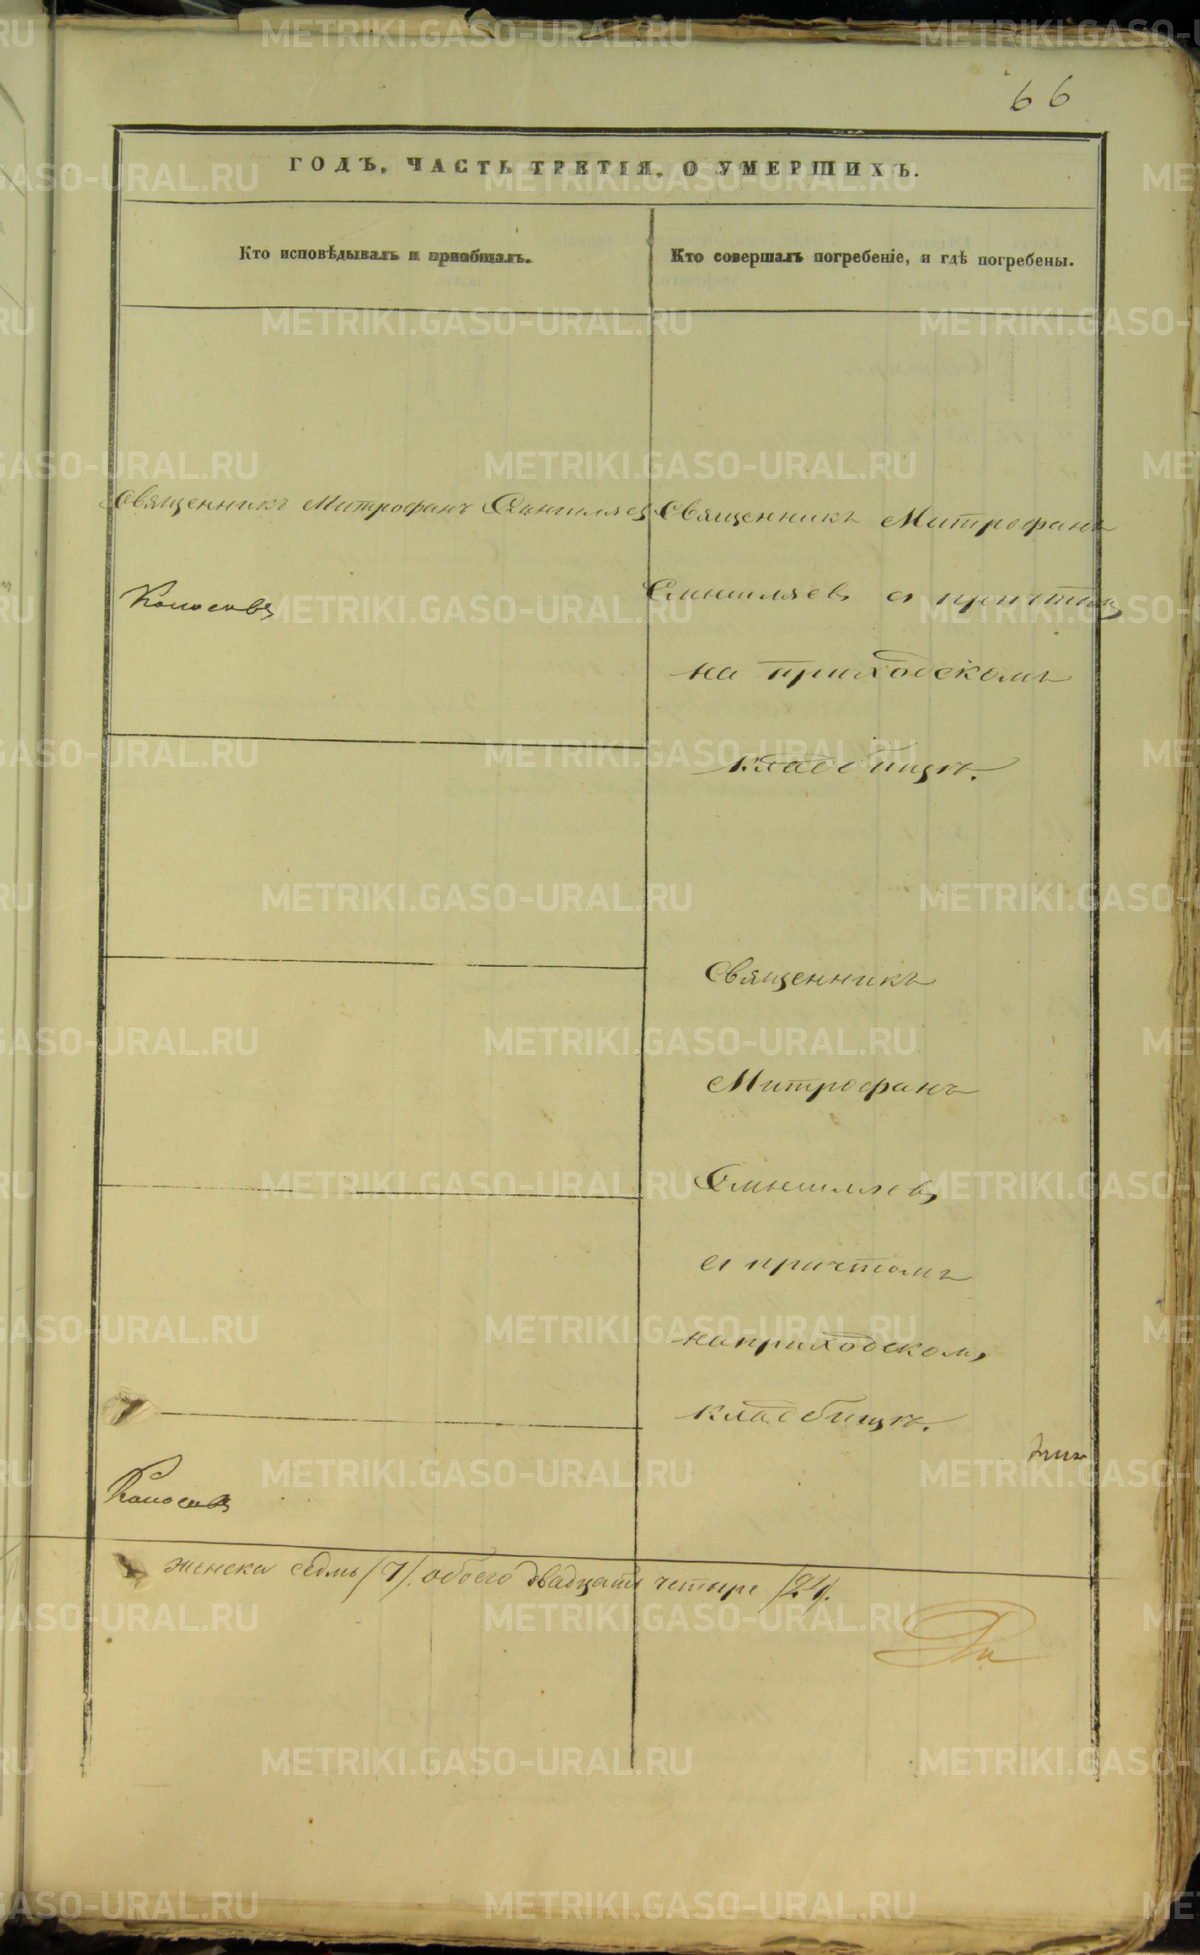 66
ГОДЪ, ЧАСТЬ ТРЕТІЯ, О УМЕРШИХЪ.
Кто исповѣдывалъ и пріобщалъ.
Кто совершалъ погребеніе, и гдѣ погребены.
Священникъ Митрофанъ Смышляевъ
Священникъ Митрофанъ
Смышляевъ съ причтомъ
на приходскомъ
кладбищѣ.
Священникъ
Митрофанъ
Смышляевъ
съ причтомъ
на приходскомъ
кладбищѣ.
7
женска седмь /7/. обоего двадцать четыре /24/.
METRIKI.GASO-URAL.RU